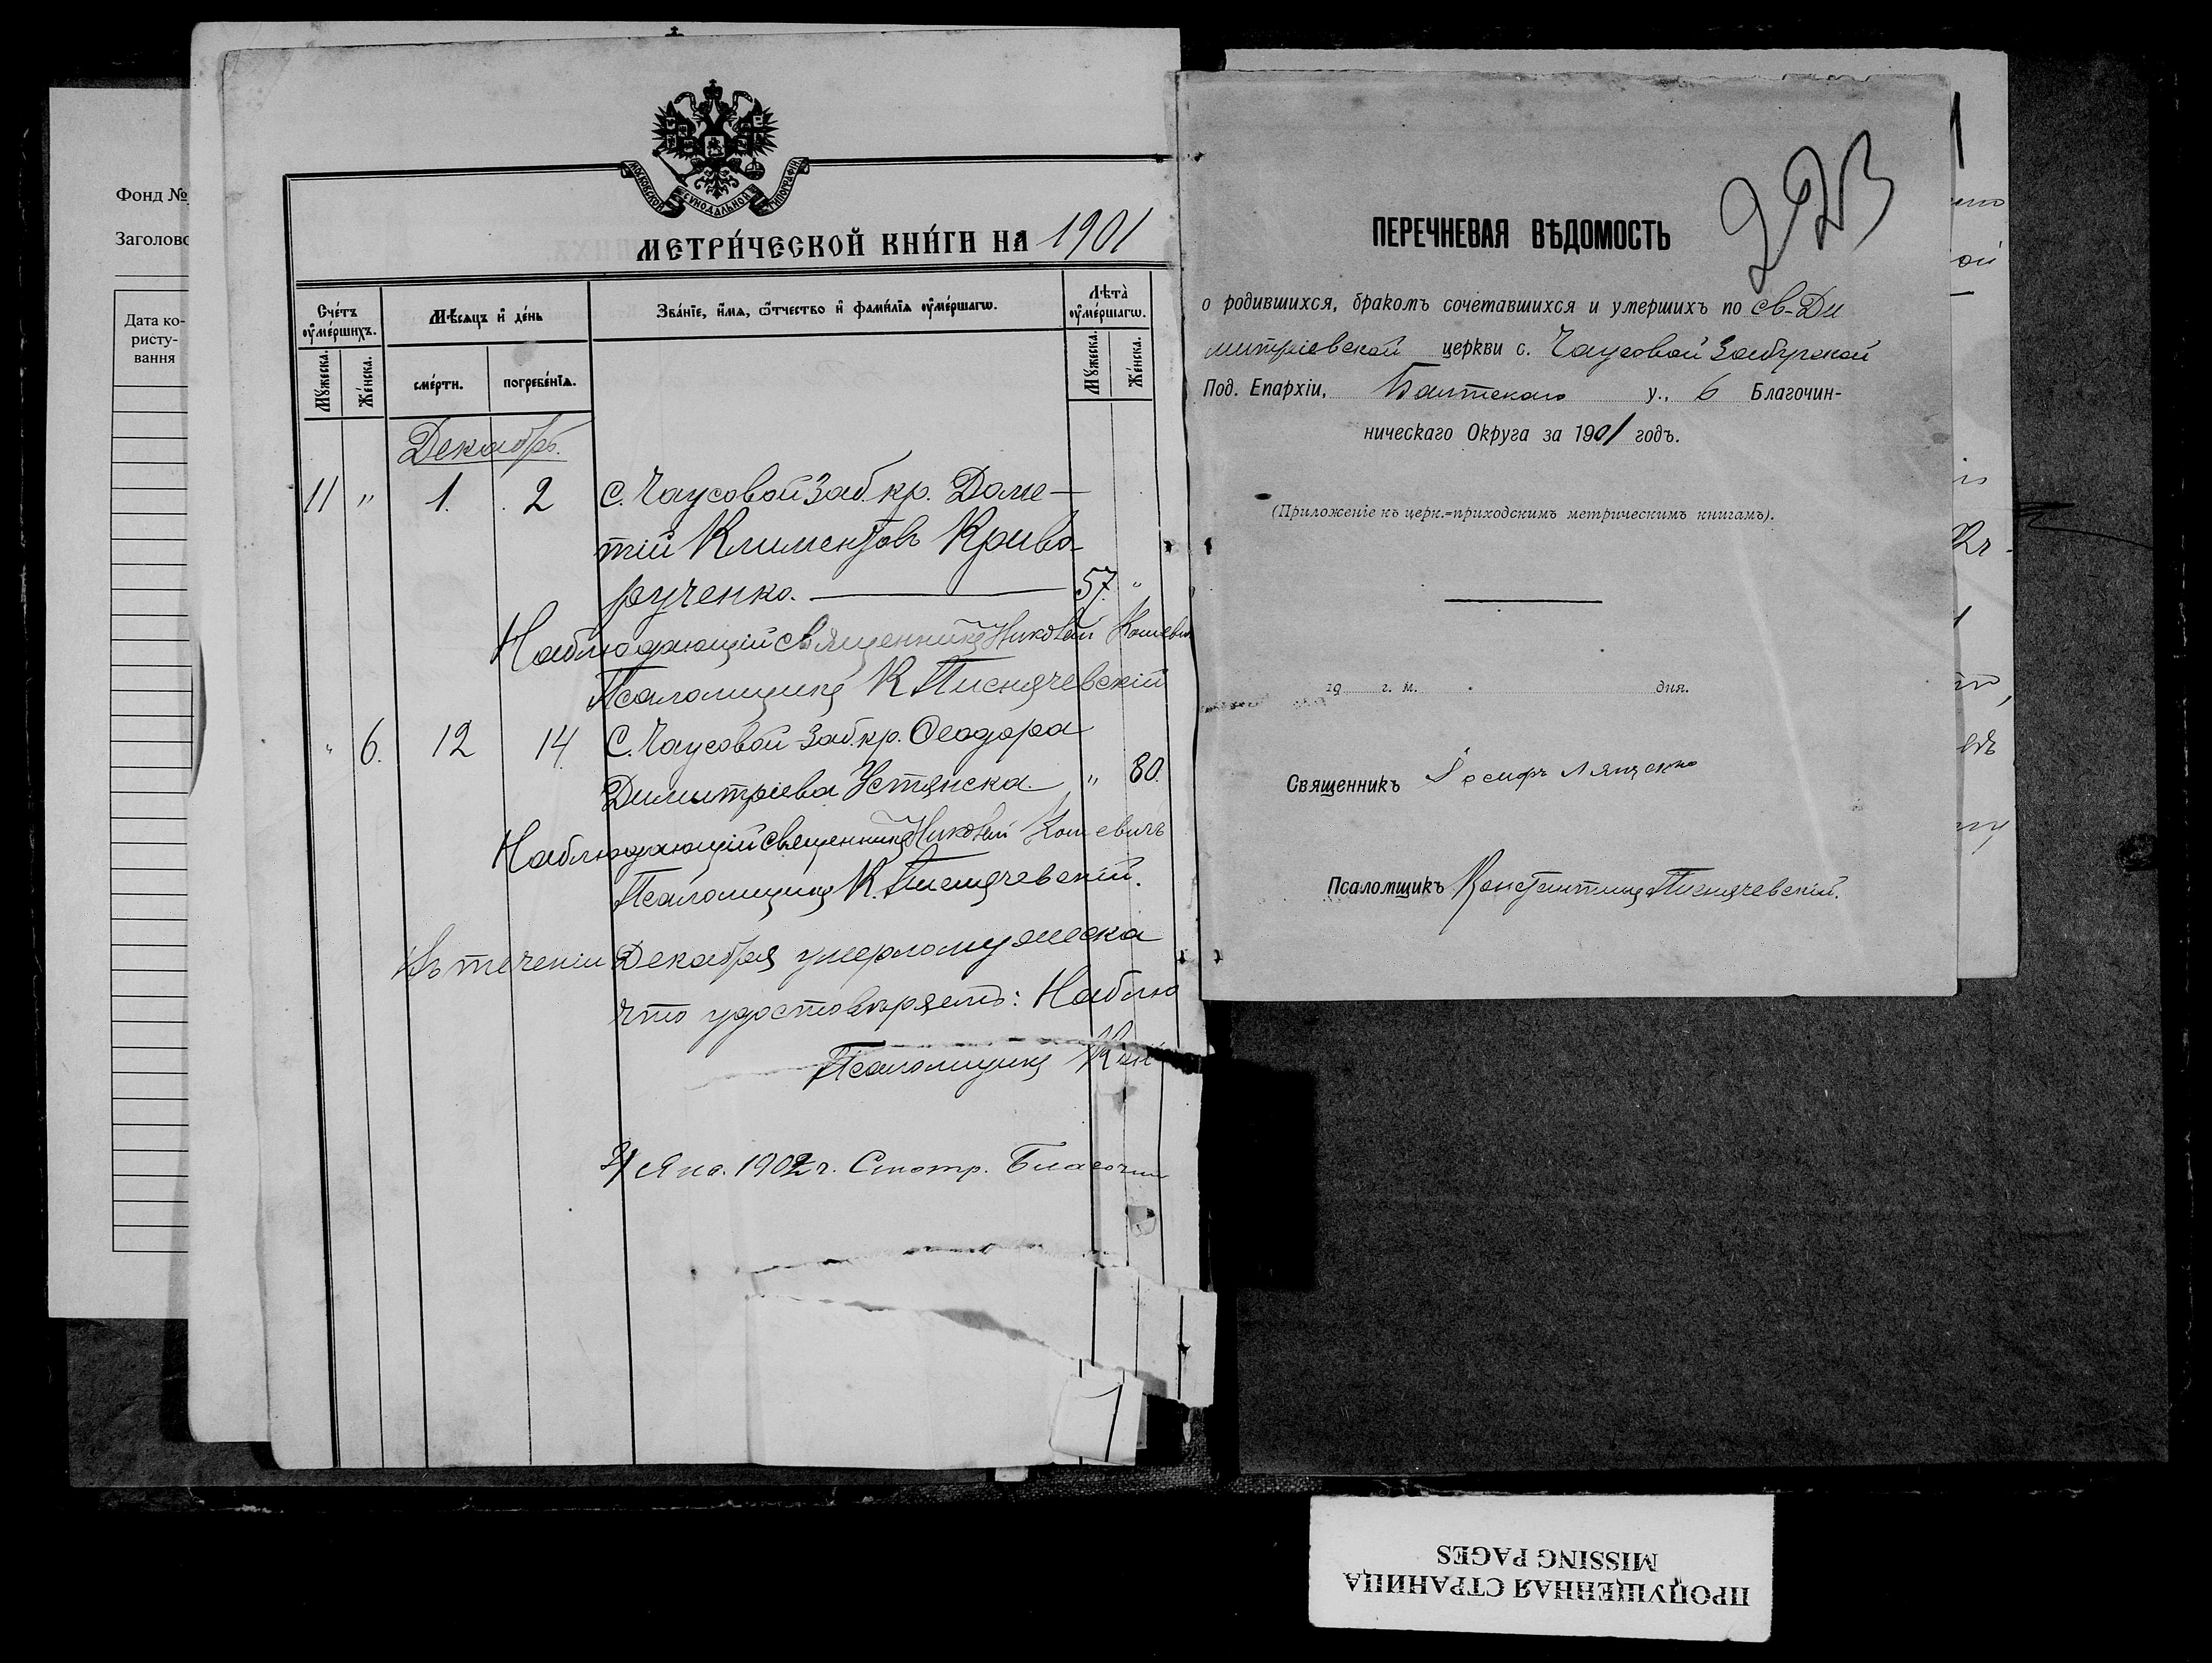 Фонд №
Заголово
Дата ко-
ристу-
вання
МОСКОВСКОЙ СѴНОДАЛЬНОЙ ТИПОГРАФІИ
МЕТРИ́ЧЕСКОЙ КНИ́ГИ НА 1901
Сче́тъ
ᲂу҆ме́ршихъ.
Мѣсяцъ и҆ де́нь
Зва́нїе, и҆́мѧ, ѻ҆́тчество и҆ фами́лїѧ ᲂу҆ме́ршагѡ.
Лѣта̀
ᲂу҆ме́ршагѡ.
Мꙋжеска.
Же́нска.
сме́рти.
погребе́нїѧ.
Мꙋжеска.
Же́нска.
Декабрь.
11 " 1. 2 С. Чаусовой Заб. кр. Доме-
тій Климентовъ Криво-
рученко. 57. "
Наблюдающій священникъ Николай
Псаломщикъ К. Писнячевскій
" 6. 12 14. С. Чаусовой Заб. кр. Ѳеодора
Димитріева Устянска. " 80.
Наблюдающій священникъ Николай
Псаломщикъ К. Писнячевскій.
Въ теченіи Декабря умерло мужеска
что удостовѣряемъ: Наблю
Псаломщикъ Кон
Янв. 1902 г. Смотр. Благочин
223
ПЕРЕЧНЕВАЯ ВѢДОМОСТЬ
о родившихся, бракомъ сочетавшихся и умершихъ по св-Ди
митріевской церкви с. Чаусовой Забугской
Под. Епархіи, Балтскаго у., 6 Благочин-
ническаго Округа за 1901 годъ.
(Приложеніе къ церк.=приходскимъ метрическимъ книгамъ).
19 г. м. дня.
Священникъ Іосифъ
Псаломщикъ Константинъ Писнячевскій.
ПРОПУЩЕННАЯ СТРАНИЦА
MISSING PAGES